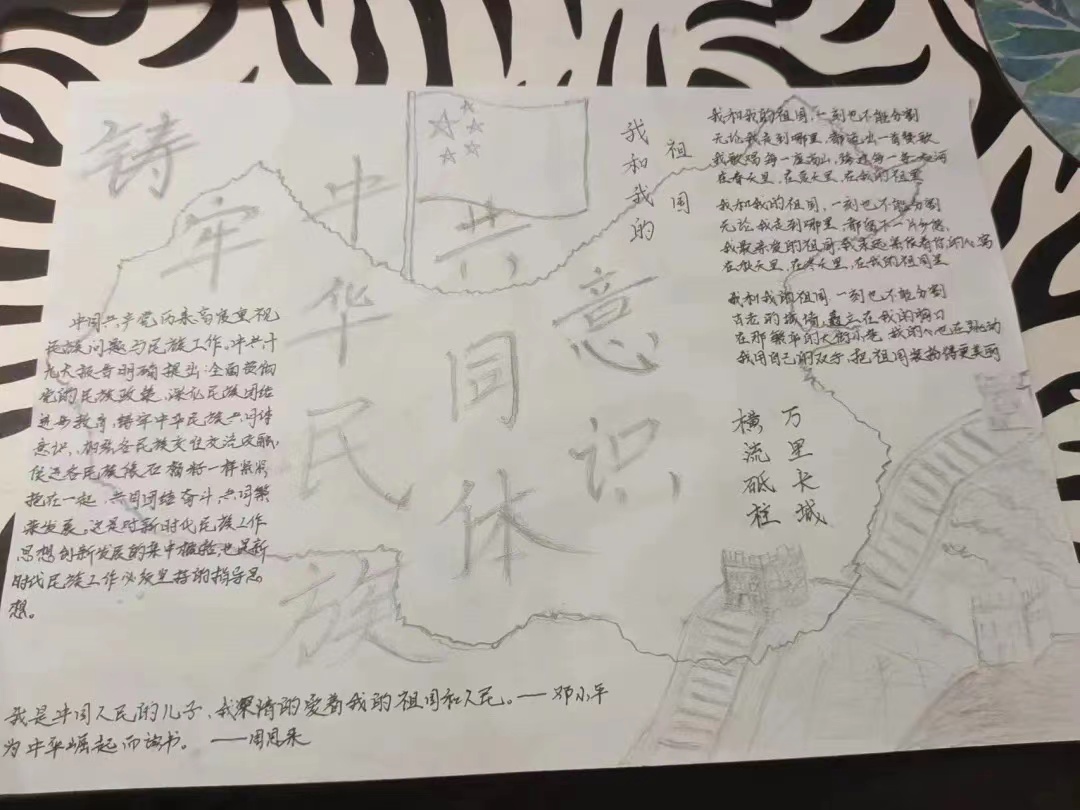 铸
牢
中
华
民
族
共
同
体
意
识
中国共产党历来高度重视
民族问题与民族工作。中共十
九大报告明确提出:全面贯彻
党的民族政策,深化民族团结
进步教育,铸牢中华民族共同体
意识,加强各民族交往交流交融,
促进各民族像石榴籽一样紧紧
抱在一起,共同团结奋斗,共同繁
荣发展。这是对新时代民族工作
思想创新发展的集中 也是新
时代民族工作必须坚持的指导思
想。
我和我的
祖国
我和我的祖国,一刻也不能分割
无论我走到哪里,都流出一首赞歌
我歌唱每一座高山,我 每一条河
在春天里,在夏天里,在我的 里
我和我的祖国,一刻也不能分割
无论我走到哪里,都留下一片
我最亲爱的祖国,我永远紧依着你的心窝
在秋天里,在冬天里,在我的祖国里
我和我的祖国 一刻也不能分割
古老的城 矗立在我的胸口
在那 的大街小巷 我的心也在跳动
我用自己的双手,把祖国装扮得更美丽
万里长城
横流砥柱
我是中国人民的儿子,我深情的爱着我的祖国和人民。——邓小平
为中华崛起而读书。——周恩来